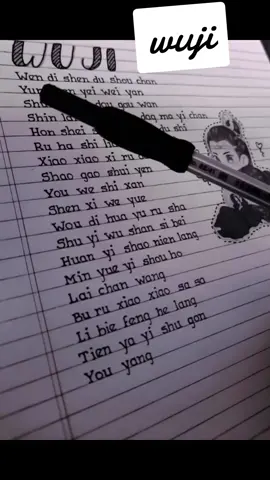 wuji
WUJI
Wen di shen du shou chan
yei wei yan
dou gou wan
Shin dag ma yi chan
Hon shei du shi
Ru ha shi
Xiao xiao xi ru
Shao gao shui yen
You we shi xan
Shen xi we yue
Wou di hua yu ru sha
Shu yi wu shan si bei
Huan yi shao nien lang
Min yue yi shou ho
Lai chan wang
Bu ru xiao xiao sa sa
Li bie feng he lang
Tien ya yi shu gon
You yang